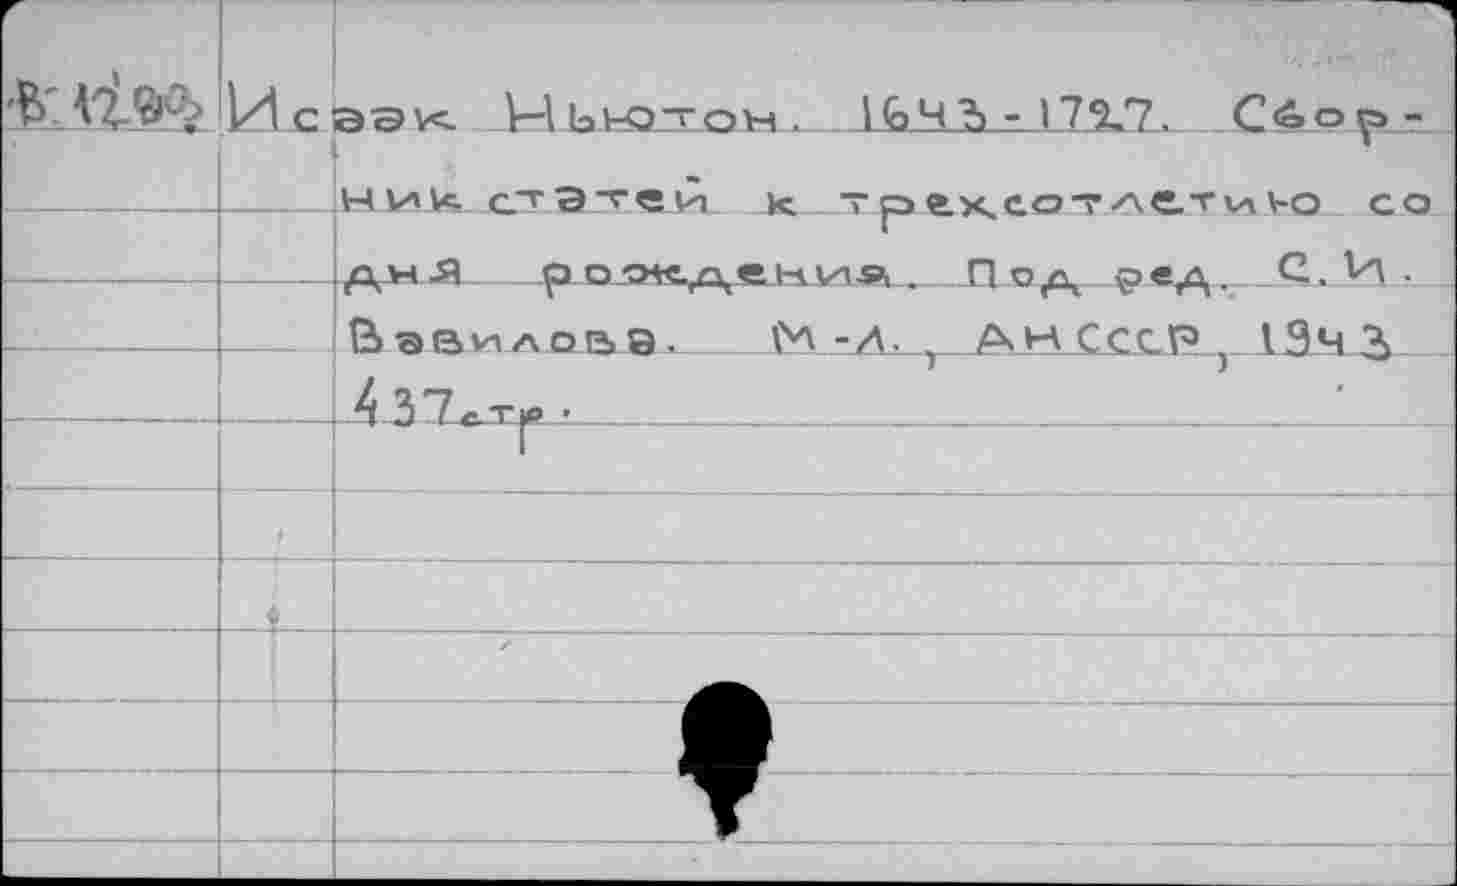 Исаак Ньютон. 1643-1727. Сбор-
ник статей к трехсотлетию со
дня рождения. Под ред. С.И.
Вавилова. М-Л., АНСССР, 1943
437стр.